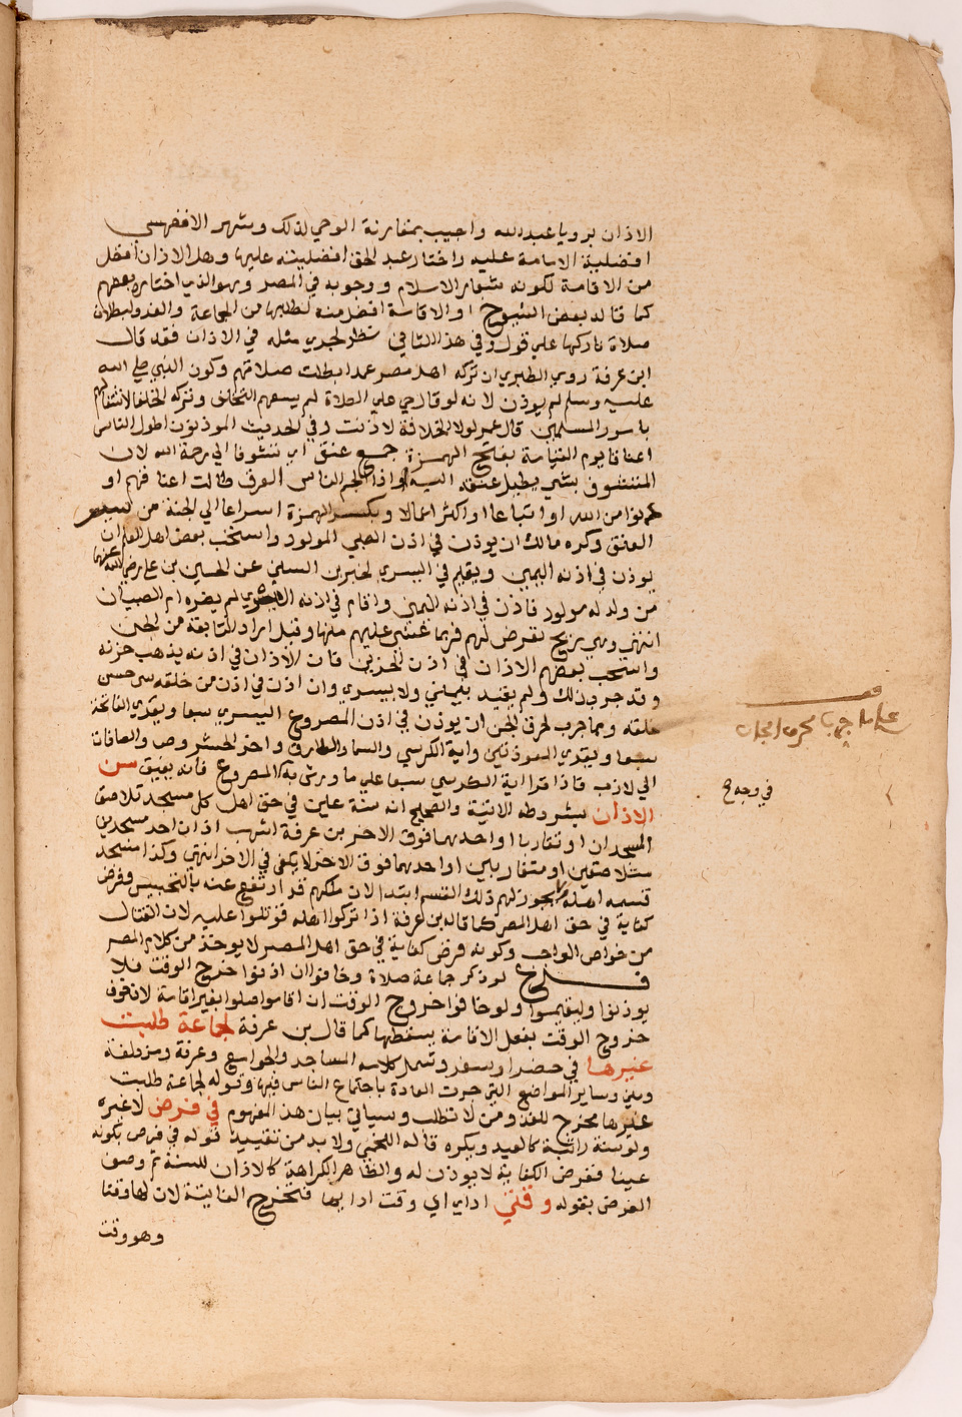 الاذان برويا عبد الله واجيب بمقارنة الوحي لذلك وشهر الاقفهسي
افضلية الامامة عليه واختار عبد الحق افضليته عليها وهل الاذان أفضل
من الاقامة لكونه شعار الاسلام ووجوبه في المصر وهو الذي اختاره بعضهم
كما قاله بعض الشيوخ او الاقامة افضل منه لطلبها من الجماعة والفذ ولبطلان
صلاة تاركها علي قول وفي هذا الثاني نظر لجدي مثله في الاذان فقد قال
ابن عرفة روي الطبري ان تركه اهل مصر عمدا بطلت صلاتهم وكون النبي صلي الله
عليه وسلم لم يوذن لانه لو قال حي علي الصلاة لم يسعهم التخلف وتركه الخلفا لاشتغالهم
بامور المسلمين قال عمر لولا الخلافة لاذنت وفي الحديث الموذنون اطول الناس
اعناقا يوم القيامة بفتح الهمزة جمع عنق اي تشوفا الي رحمة الله لان
المتشوف بشي يطيل عنقه اليه او اذا الجم الناس العرق طالت اعناقهم او
اومن الله او اتباعا او اكثر اعمالا وبكسر الهمزة اسراعا الي الجنة من سير
العنق وكره مالك ان يوذن في اذن الصبي المولود واستحب بعض اهل العلم ان
يوذن في اذنه اليمين ويقيم في اليسري لخبر بن السني عن الحسين بن علي رضي الله عنهما
من ولد له مولود فاذن في اذنه اليمني واقام في اذنه اليسري لم يضره ام الصبيان
انتهي وهي ريح تعرض لهم فربما غشي عليهم منها وقيل ام الصبيان التابعة من الجن
واستحب بعضهم الاذان في اذن الحزين فان الاذان في اذنه يذهب حزنه
وقد جرب ذلك ولم يقيد بيمني ولا يسري وان اذن في اذن من خلقه سي حسن
خلقه ومما جرب لحرق الجن ان يوذن في اذن المصروع اليسري سبعا ويقري الفاتحة
سبعا ويقري المعوذتين واية الكرسي والسما والطارق واخر الحشر وص والصافات
الي لازب فاذا قرا اية الكرسي سبعا علي ما ورش به المصروع فانه يفيق سن
الاذان بشروطه الاتية والصحيح انه سنة عين في حق اهل كل مسجد تلاصق
المسجدان او تقاربا او احدهما فوق الاخر بن عرفة اشهب اذان احد مسجدين
متلاصقين او متقاربين او احدهما فوق الاخر لا يكفي في الاخر انتهي وكذا مسجد
قسمه اهله ولا يجوز لهم ذلك القسم ابتدا لان ملكهم قد ارتفع عنه بالتحبيس وفرض
كفاية في حق اهل المصر كما قاله بن عرفة اذا تركوا اهله قوتلوا عليه لان القتال
من خواص الواجب وكونه فرض كفاية في حق اهل المصر لا يوخذ من كلام المص
فرع لو ذكر جماعة صلاة وخافوا ان اذنوا خرج الوقت فلا
يوذنوا وليقيموا ولو خافوا خروج الوقت ان اقاموا صلوا بغير اقامة لان خوف
خروج الوقت بفعل الاقامة يسقطها كما قال بن عرفة لجماعة طلبت
غيرها في حضر او سفر وشمل كلامه المساجد والجوامع وعرفة ومزدلفة
ومني وساير المواضع التي جرت العادة باجتماع الناس فيها وقوله لجماعة طلبت
غيرها مخرج للفذ ومن لا تطلب وسياتي بيان هذا المفهوم في فرض لا غيره
ولو سنة راتبة كالعيد ويكره قاله اللخمي ولا بد من تقييد قوله في فرض بكونه
عينا ففرض الكفاية لا يوذن له والظاهر الكراهة كالاذان للسنة ثم وصف
الفرض بقوله وقتي اداي اي وقت ادايها فتخرج الفايتة لان لها وقتا
وهو وقت
قف
علي ما جرب لحرق الجان
في وجه ع